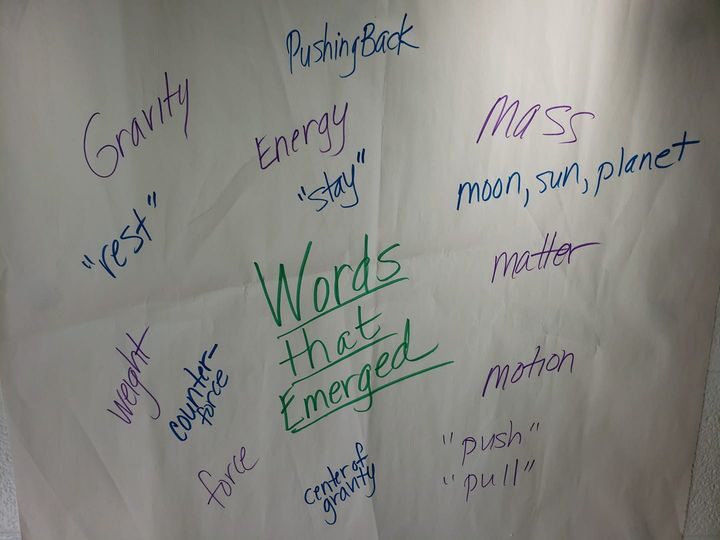 Pushing Back
Gravity
Energy
Mass
"rest"
"stay"
moon, sun, planet
Words
that
Emerged
matter
weight
counter-
force
motion
force
center of
gravity
"push"
"pull"